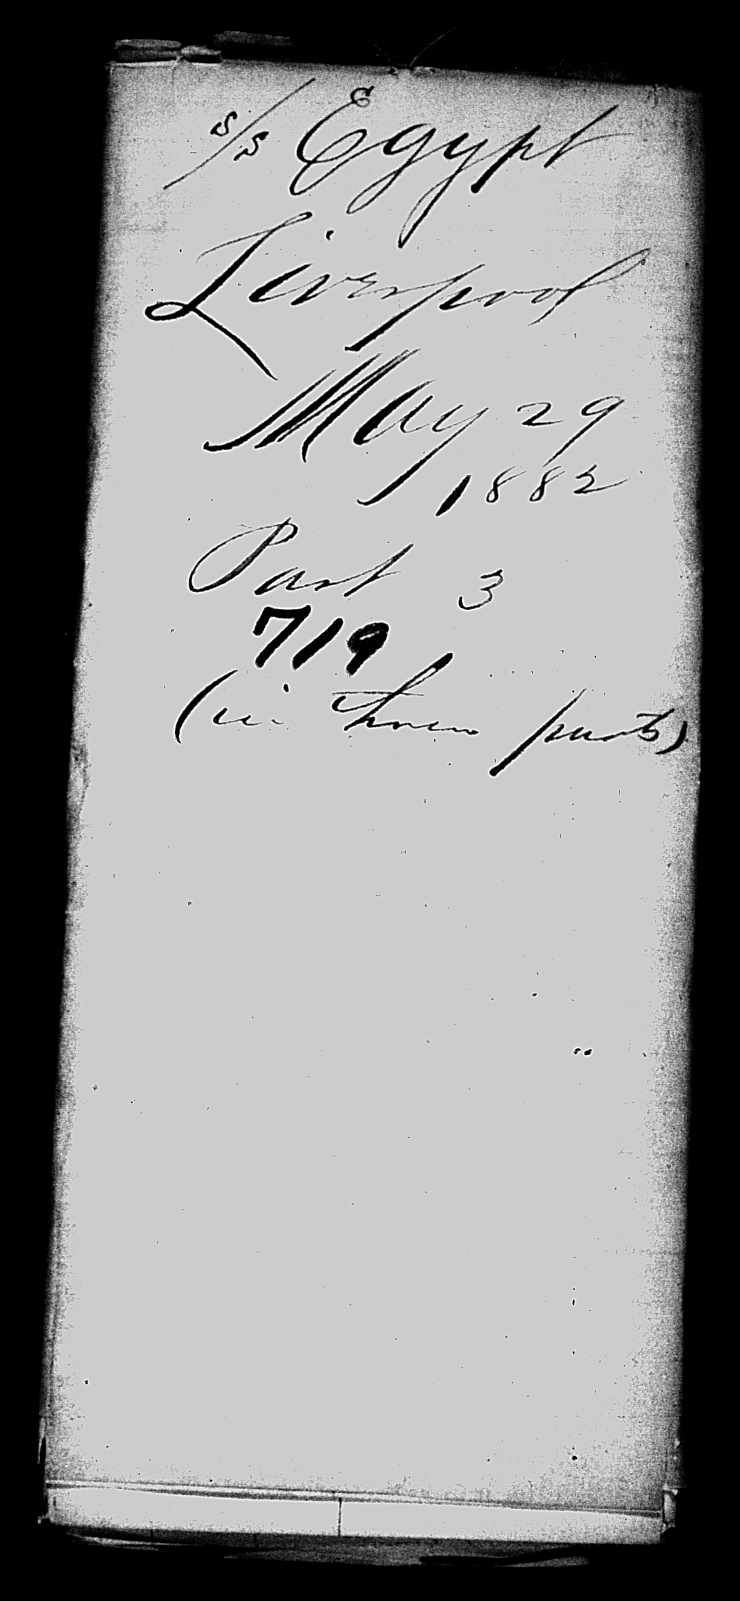 s/s Egypt
Liverpool
May 29
1882
Part 3
719
(in three parts)